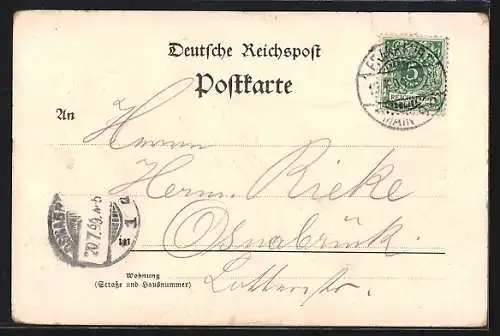 Deutsche Reichspost
Postkarte
An
Herrn
Herm. Rieke
Osnabrück.
Lotterstr.
Wohnung
(Straße und Hausnummer)
5
MAIN
20.7.99.